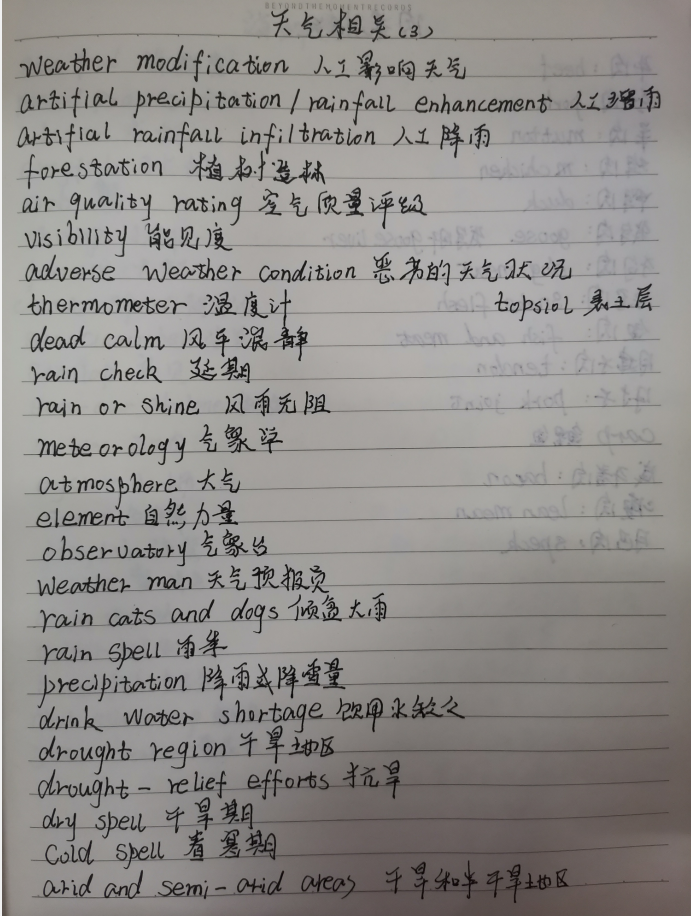 BEYONDTHEMOMENTRECORDS
天气相关(3)
weather modification 人工影响天气
artifial precipitation/rainfall enhancement 人工增雨
artifial rainfall infiltration 人工降雨
forestation 植树造林
air quality rating 空气质量评级
visibility 能见度
adverse weather condition 恶劣的天气状况
thermometer 温度计 topsiol 表土层
dead calm 风平浪静
rain check 延期
rain or shine 风雨无阻
meteorology 气象学
atmosphere 大气
element 自然力量
observatory 气象台
weather man 天气预报员
rain cats and dogs 倾盆大雨
rain spell 雨季
precipitation 降雨或降雪量
drink water shortage 饮用水缺乏
drought region 干旱地区
drought-relief efforts 抗旱
dry spell 干旱期
cold spell 春寒期
arid and semi-arid areas 干旱和半干旱地区